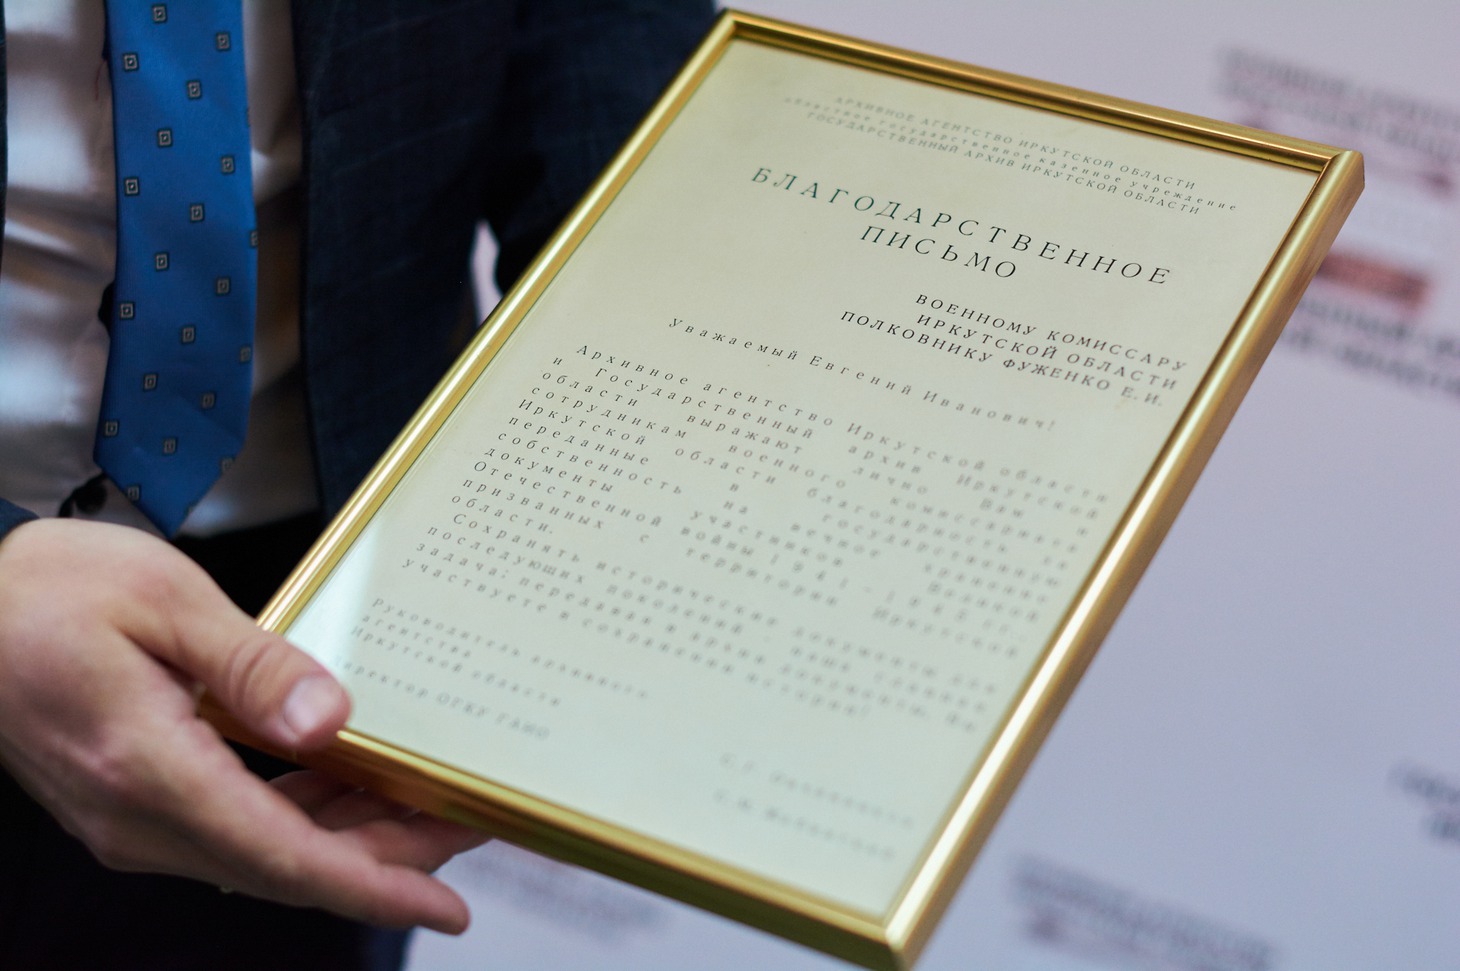 АРХИВНОЕ АГЕНТСТВО ИРКУТСКОЙ ОБЛАСТИ
областное государственное казенное учреждение
ГОСУДАРСТВЕННЫЙ АРХИВ ИРКУТСКОЙ ОБЛАСТИ
БЛАГОДАРСТВЕННОЕ
ПИСЬМО
ВОЕННОМУ КОМИССАРУ
ИРКУТСКОЙ ОБЛАСТИ
ПОЛКОВНИКУ ФУЖЕНКО Е. И.
Уважаемый Евгений Иванович!
Архивное агентство Иркутской области
и Государственный архив Иркутской
области выражают лично Вам и
сотрудникам военного комиссариата
Иркутской области благодарность за
переданные в государственную
собственность на вечное хранение
документы участников Великой
Отечественной войны 1941 – 1945 гг.,
призванных с территории Иркутской
области.
Сохранять исторические документы для
последующих поколений – наша главная
задача; передавая в архив документы, Вы
участвуете в сохранении истории!
Руководитель архивного
агентства
Иркутской области
Директор ОГКУ ГАИО